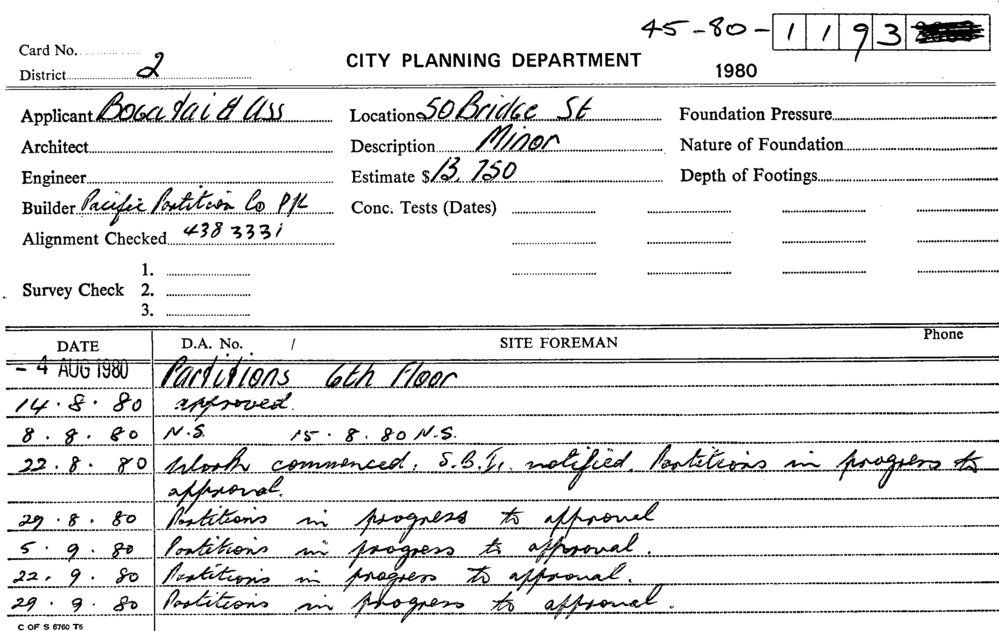 45-80-1193
Card No.
District 2
CITY PLANNING DEPARTMENT
1980
Applicant Bogatai & Ass
Location 50 Bridge St
Foundation Pressure
Architect
Description Minor
Nature of Foundation
Engineer
Estimate $ 13,750
Depth of Footings
Builder Pacific Partition Co P/L
Conc. Tests (Dates)
Alignment Checked 438 3331
1.
Survey Check 2.
3.
DATE D.A. No. / SITE FOREMAN Phone
- 4 AUG 1980 Partitions 6th Floor
14.8.80 approved.
8.8.80 N.S. 15.8.80 N.S.
22.8.80 Work commenced. S.B.I. notified. Partitions in progress to
approval.
29.8.80 Partitions in progress to approval
5.9.80 Partitions in progress to approval.
22.9.80 Partitions in progress to approval.
29.9.80 Partitions in progress to approval.
C OF S 6760 T6